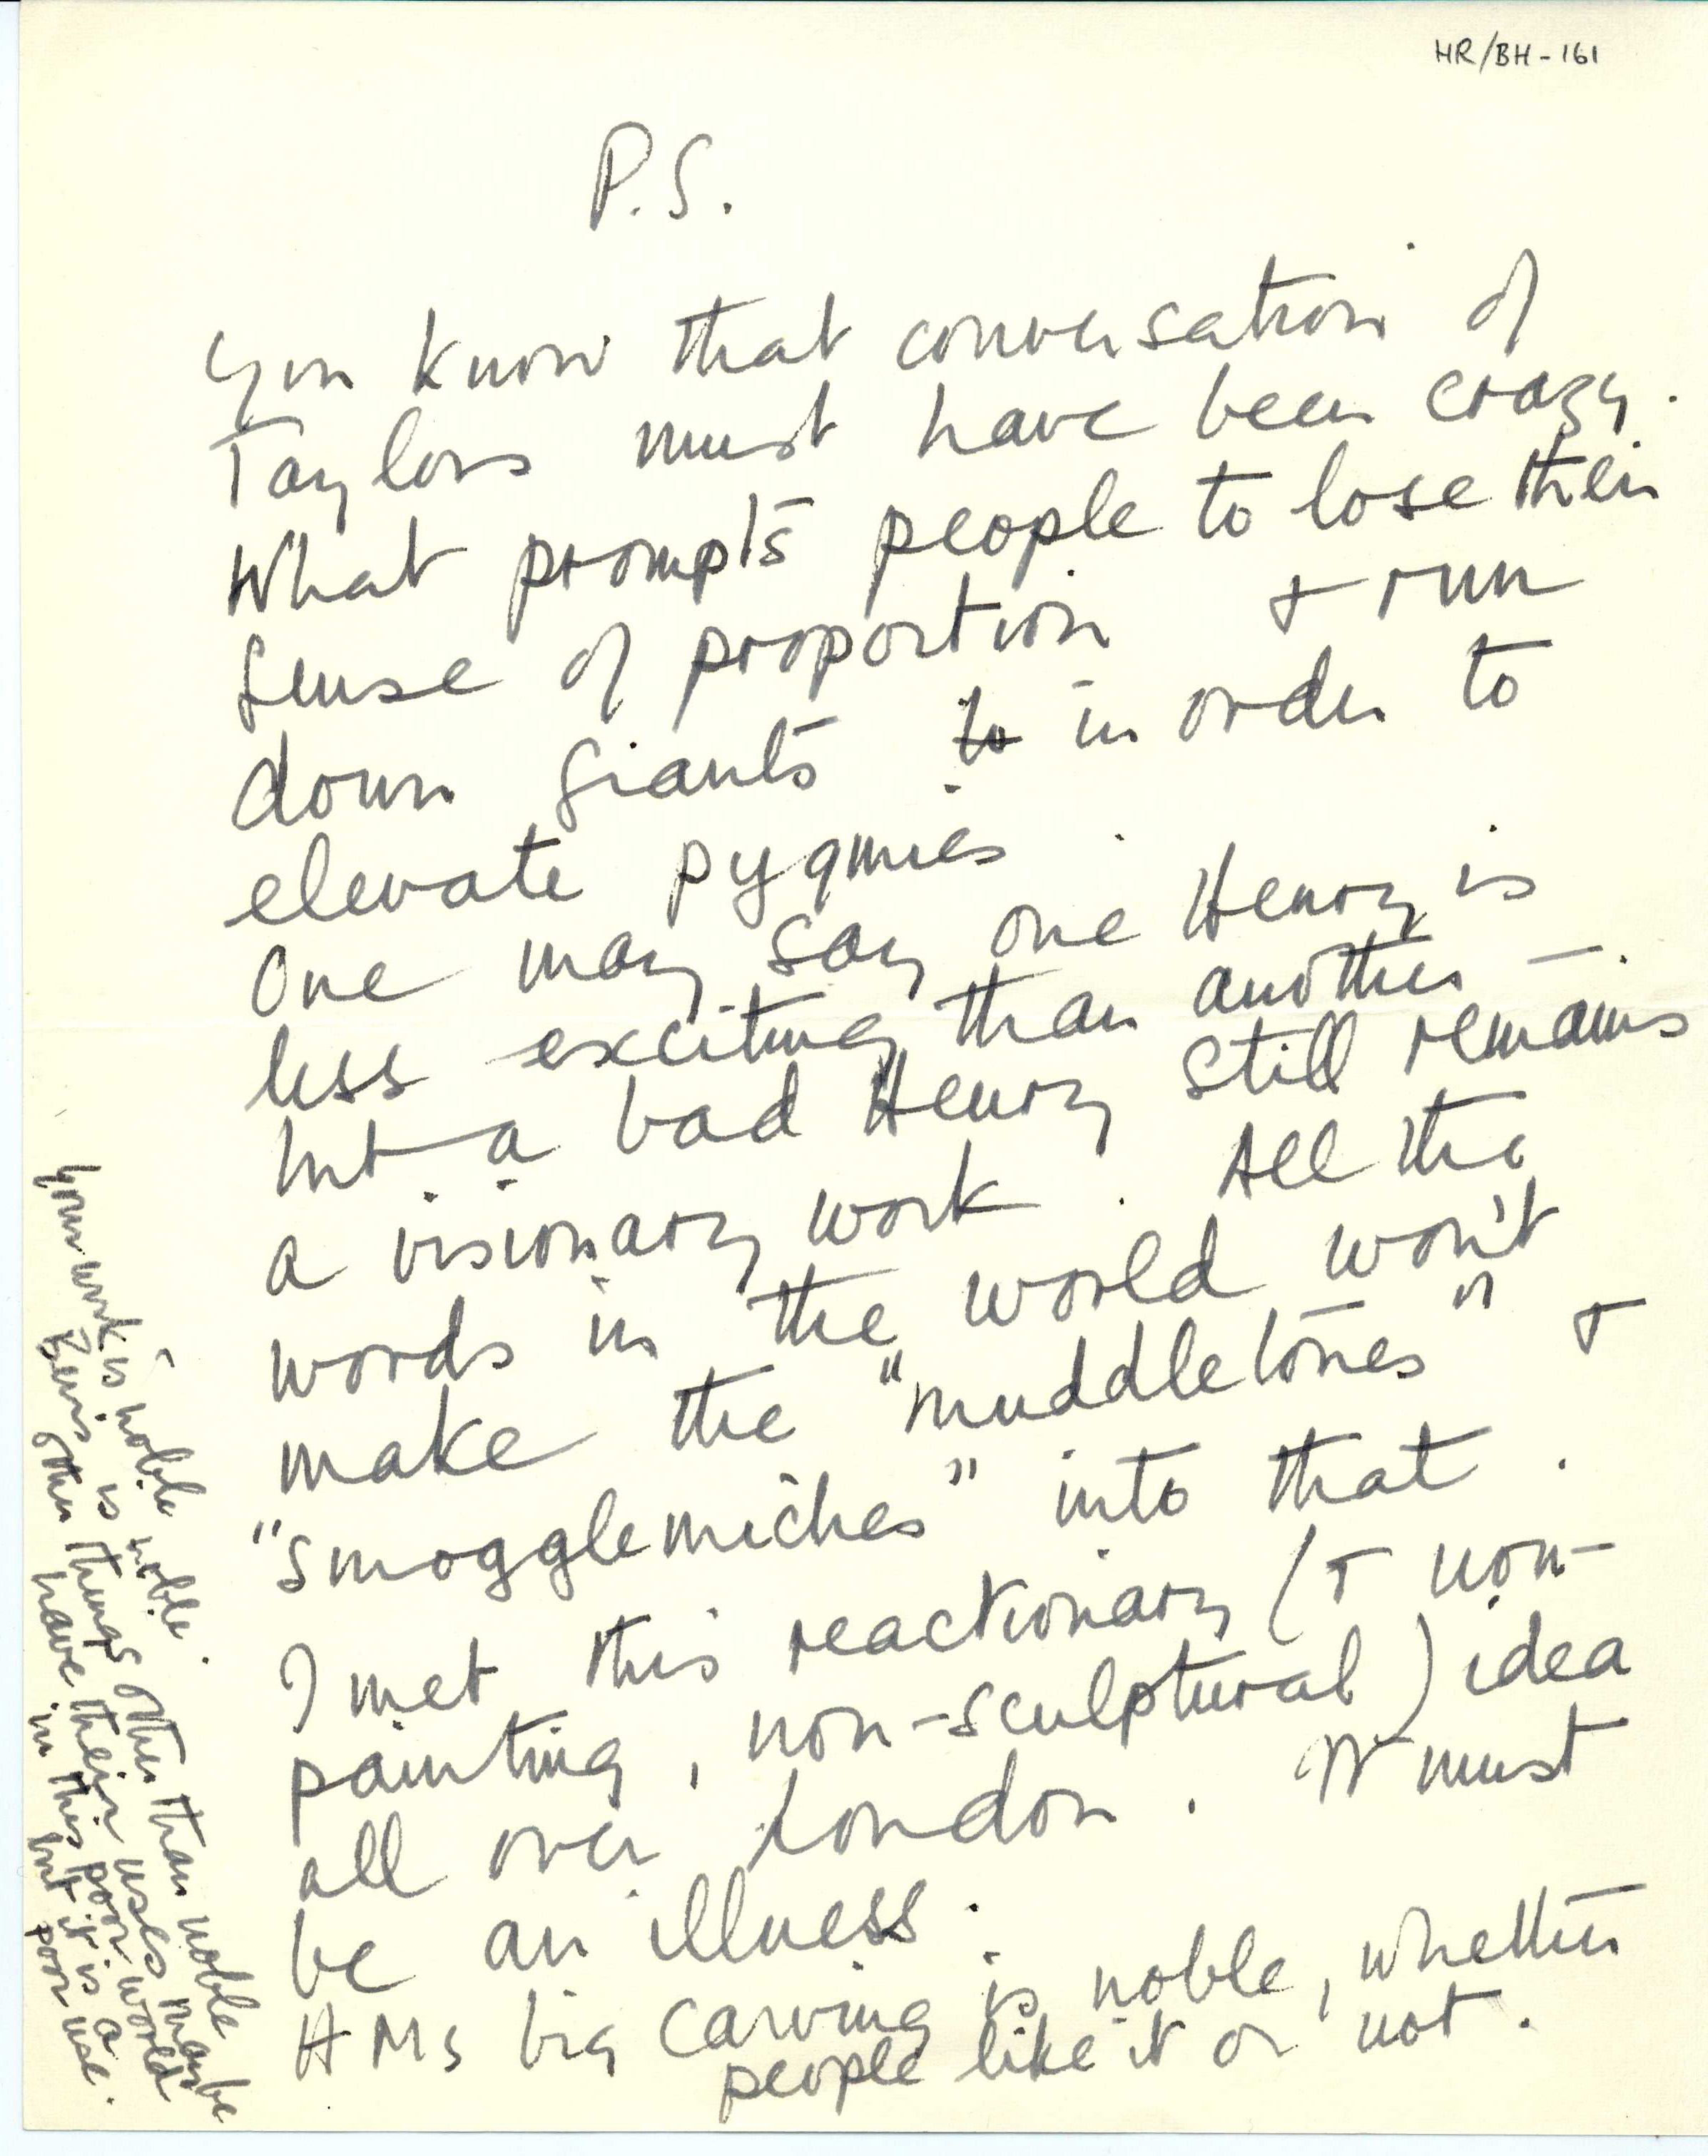 HR/BH - 161
P.S.
You know that conversation of
Taylors must have been crazy.
What prompts people to lose their
sense of proportion & run
down giants to in order to
elevate pygmies.
One may say one Henry is
less exciting than another —.
but a bad Henry still remains
a visionary work. All the
words in the world won't
make the "muddletones" &
"smogglemiches" into that.
I met this reactionary (& non-
painting, non-sculptural) idea
all over London. It must
be an illness.
HMs big carving is noble, whether
people like it or not.
Your work is noble
Bens is noble.
Other things other than noble maybe
have their uses
in this poor world
but it is a
poor use.